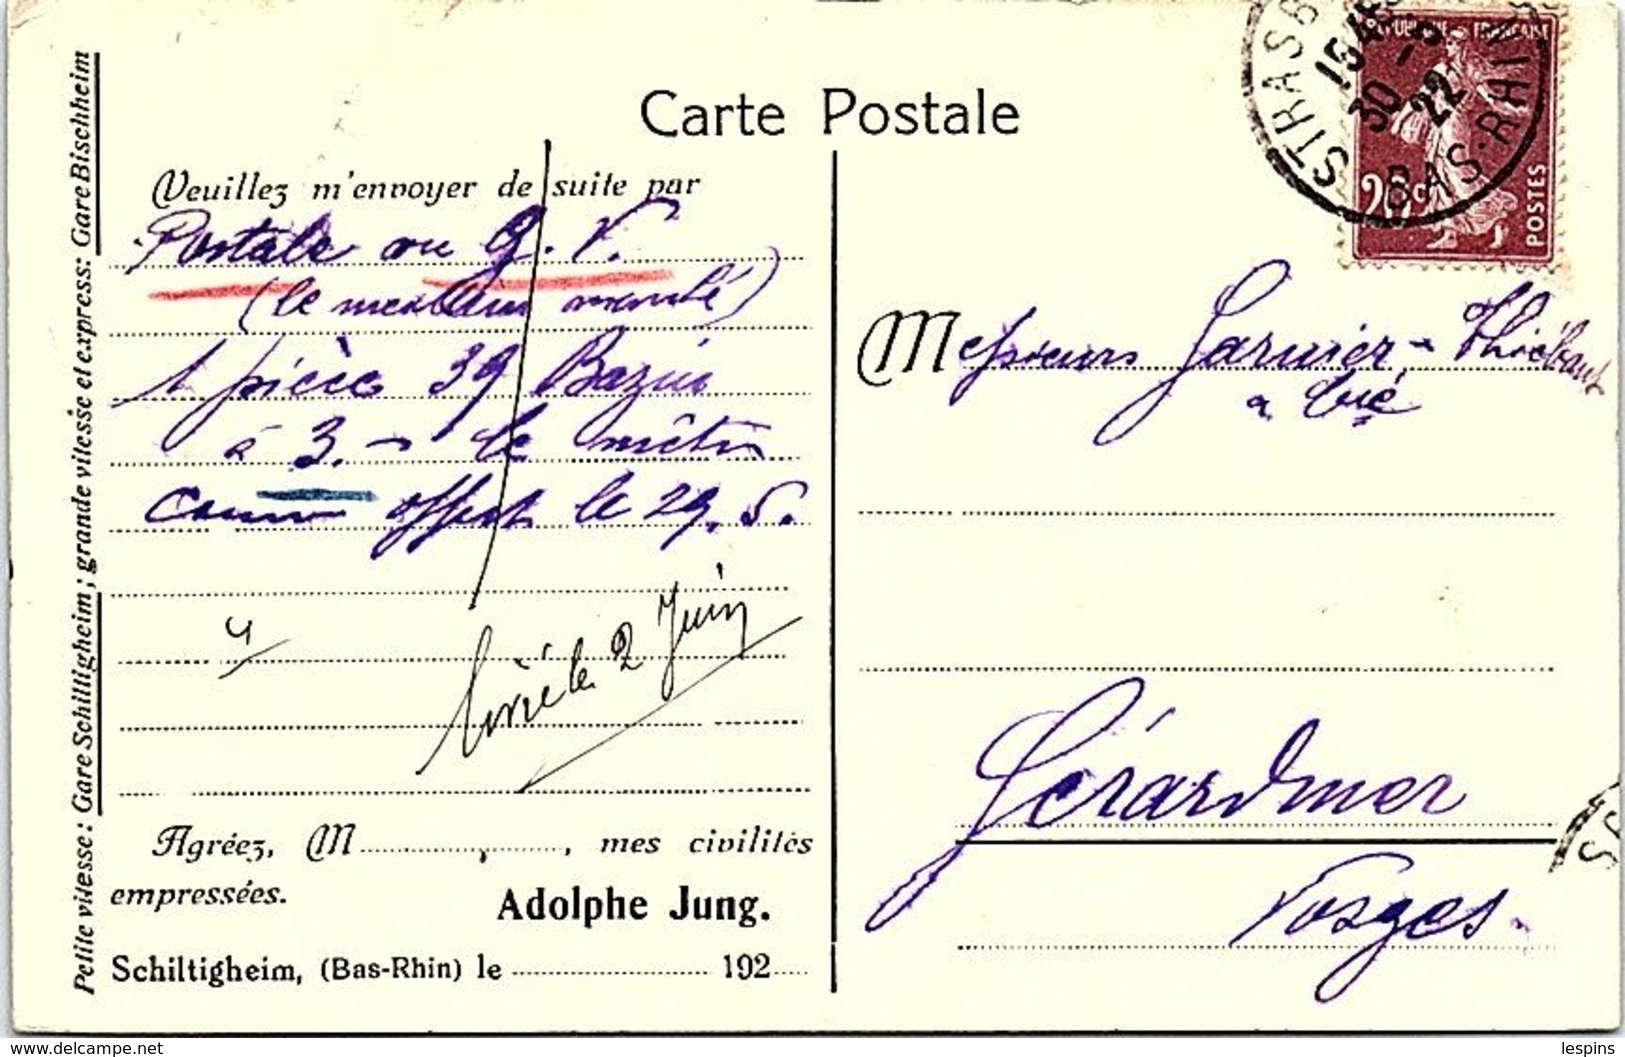 Carte Postale
Petite vitesse: Gare Schiltigheim; grande vitesse et express: Gare Bischheim
Veuillez m'envoyer de suite par
Postale ou g. V.
(le meilleur marché)
1 pièce 39 Bazin
à 3. - le mètre
comme offert le 29. 5.
4
livré le 2 Juin
Agréez, M , mes civilités
empressées.
Adolphe Jung.
Schiltigheim, (Bas-Rhin) le 192
REPUBLIQUE FRANÇAISE
20c
POSTES
STRASB
BAS-RHIN
1545
30-5
22
Messieurs Garnier - Thiébaut
& Cie
Gérardmer
Vosges.
lespins